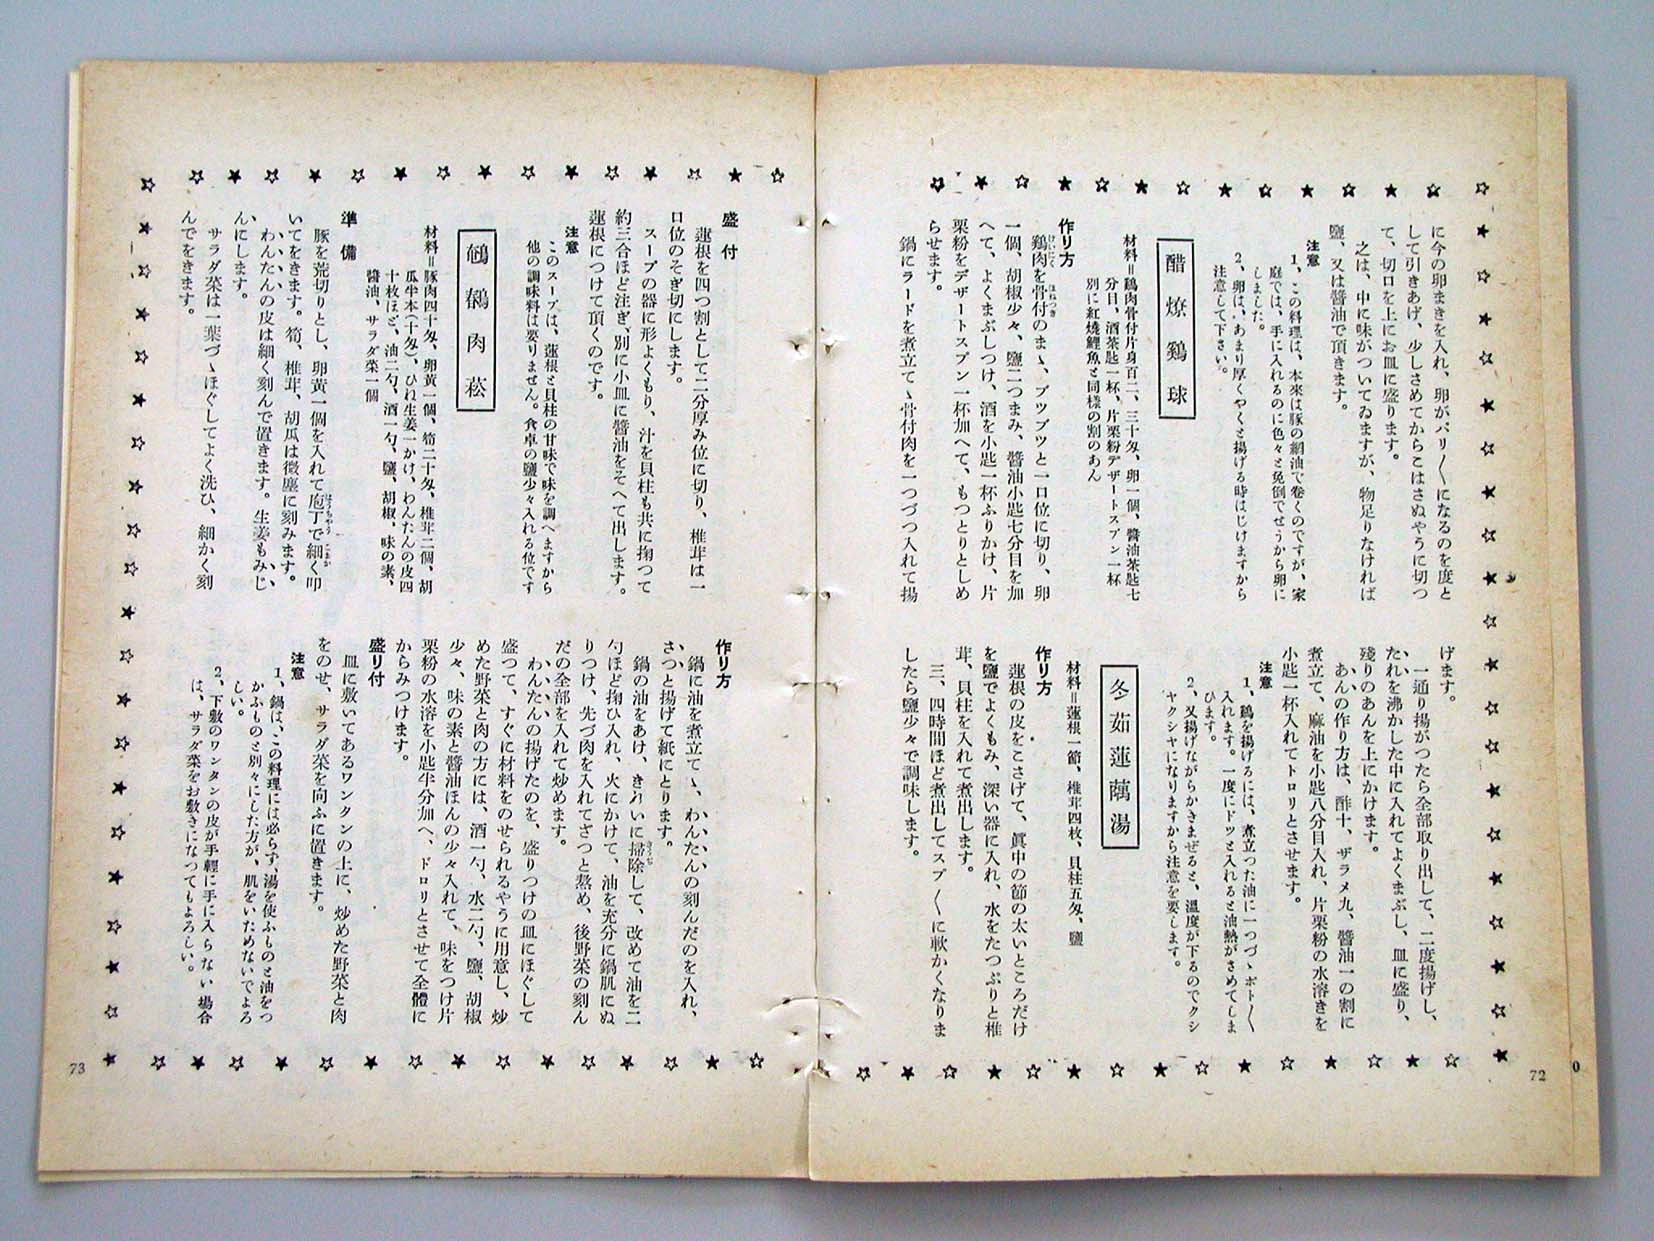 に今の卵まきを入れ、卵がパリ〳〵になるのを度と
して引きあげ、少しさめてからこはさぬやうに切つ
て、切口を上にお皿に盛ります。
之は、中に味がついてゐますが、物足りなければ
鹽、又は醬油で頂きます。
注意
1、この料理は、本來は豚の網油で卷くのですが、家
庭では、手に入れるのに色々と免倒でせうから卵に
しました。
2、卵は、あまり厚くやくと揚げる時はじけますから
注意して下さい。
醋燎鷄球
材料＝鷄肉骨付片身百二、三十匁、卵一個、醬油茶匙七
分目、酒茶匙一杯、片栗粉デザートスプン一杯
別に紅燒鯉魚と同樣の割のあん
作り方
鷄肉を骨付のまゝ、ブツブツと一口位に切り、卵
一個、胡椒少々、鹽二つまみ、醬油小匙七分目を加
へて、よくまぶしつけ、酒を小匙一杯ふりかけ、片
栗粉をデザートスプン一杯加へて、もつとりとしめ
らせます。
鍋にラードを煮立てゝ骨付肉を一つづつ入れて揚
げます。
一通り揚がつたら全部取り出して、二度揚げし、
たれを沸かした中に入れてよくまぶし、皿に盛り、
殘りのあんを上にかけます。
あんの作り方は、酢十、ザラメ九、醬油一の割に
煮立て、麻油を小匙八分目入れ、片栗粉の水溶きを
小匙一杯入れてトロリとさせます。
注意
1、鷄を揚げるには、煮立つた油に一つづゝポト〳〵
入れます。一度にドツと入れると油熱がさめてしま
ひます。
2、又揚げながらかきまぜると、溫度が下るのでクシ
ヤクシヤになりますから注意を要します。
冬茹蓮藕湯
材料＝蓮根一節、椎茸四枚、貝柱五匁、鹽
作り方
蓮根の皮をこさげて、眞中の節の太いところだけ
を鹽でよくもみ、深い器に入れ、水をたつぷりと椎
茸、貝柱を入れて煮出します。
三、四時間ほど煮出してスプ〳〵に軟かくなりま
したら鹽少々で調味します。
72
盛付
蓮根を四つ割として二分厚み位に切り、椎茸は一
口位のそぎ切にします。
スープの器に形よくもり、汁を貝柱も共に掬つて
約三合ほど注ぎ、別に小皿に醬油をそへて出します。
蓮根につけて頂くのです。
注意
このスープは、蓮根と貝柱の甘味で味を調へますから
他の調味料は要りません。食卓の鹽少々入れる位です
肉菘
材料＝豚肉四十匁、卵黄一個、筍二十匁、椎茸二個、胡
瓜半本（十匁）、ひね生姜一かけ、わんたんの皮四
十枚ほど、油二勺、酒一勺、鹽、胡椒、味の素、
醬油、サラダ菜一個
準備
豚を荒切りとし、卵黄一個を入れて庖丁で細く叩
いてをきます。筍、椎茸、胡瓜は微塵に刻みます。
わんたんの皮は細く刻んで置きます。生姜もみじ
んにします。
サラダ菜は一葉づゝほぐしてよく洗ひ、細かく刻
んでをきます。
作り方
鍋に油を煮立てゝ、わんたんの刻んだのを入れ、
さつと揚げて紙にとります。
鍋の油をあけ、きれいに掃除して、改めて油を二
勺ほど掬ひ入れ、火にかけて、油を充分に鍋肌にぬ
りつけ、先づ肉を入れてざつと熬め、後野菜の刻ん
だの全部を入れて炒めます。
わんたんの揚げたのを、盛りつけの皿にほぐして
盛つて、すぐに材料をのせられるやうに用意し、炒
めた野菜と肉の方には、酒一勺、水二勺、鹽、胡椒
少々、味の素と醬油ほんの少々入れて、味をつけ片
栗粉の水溶を小匙半分加へ、ドロリとさせて全體に
からみつけます。
盛り付
皿に敷いてあるワンタンの上に、炒めた野菜と肉
をのせ、サラダ菜を向ふに置きます。
注意
1、鍋は、この料理には必らず、湯を使ふものと油をつ
かふものと別々にした方が、肌をいためないでよろ
しい。
2、下敷のワンタンの皮が手輕に手に入らない場合
は、サラダ菜をお敷きになつてもよろしい。
73